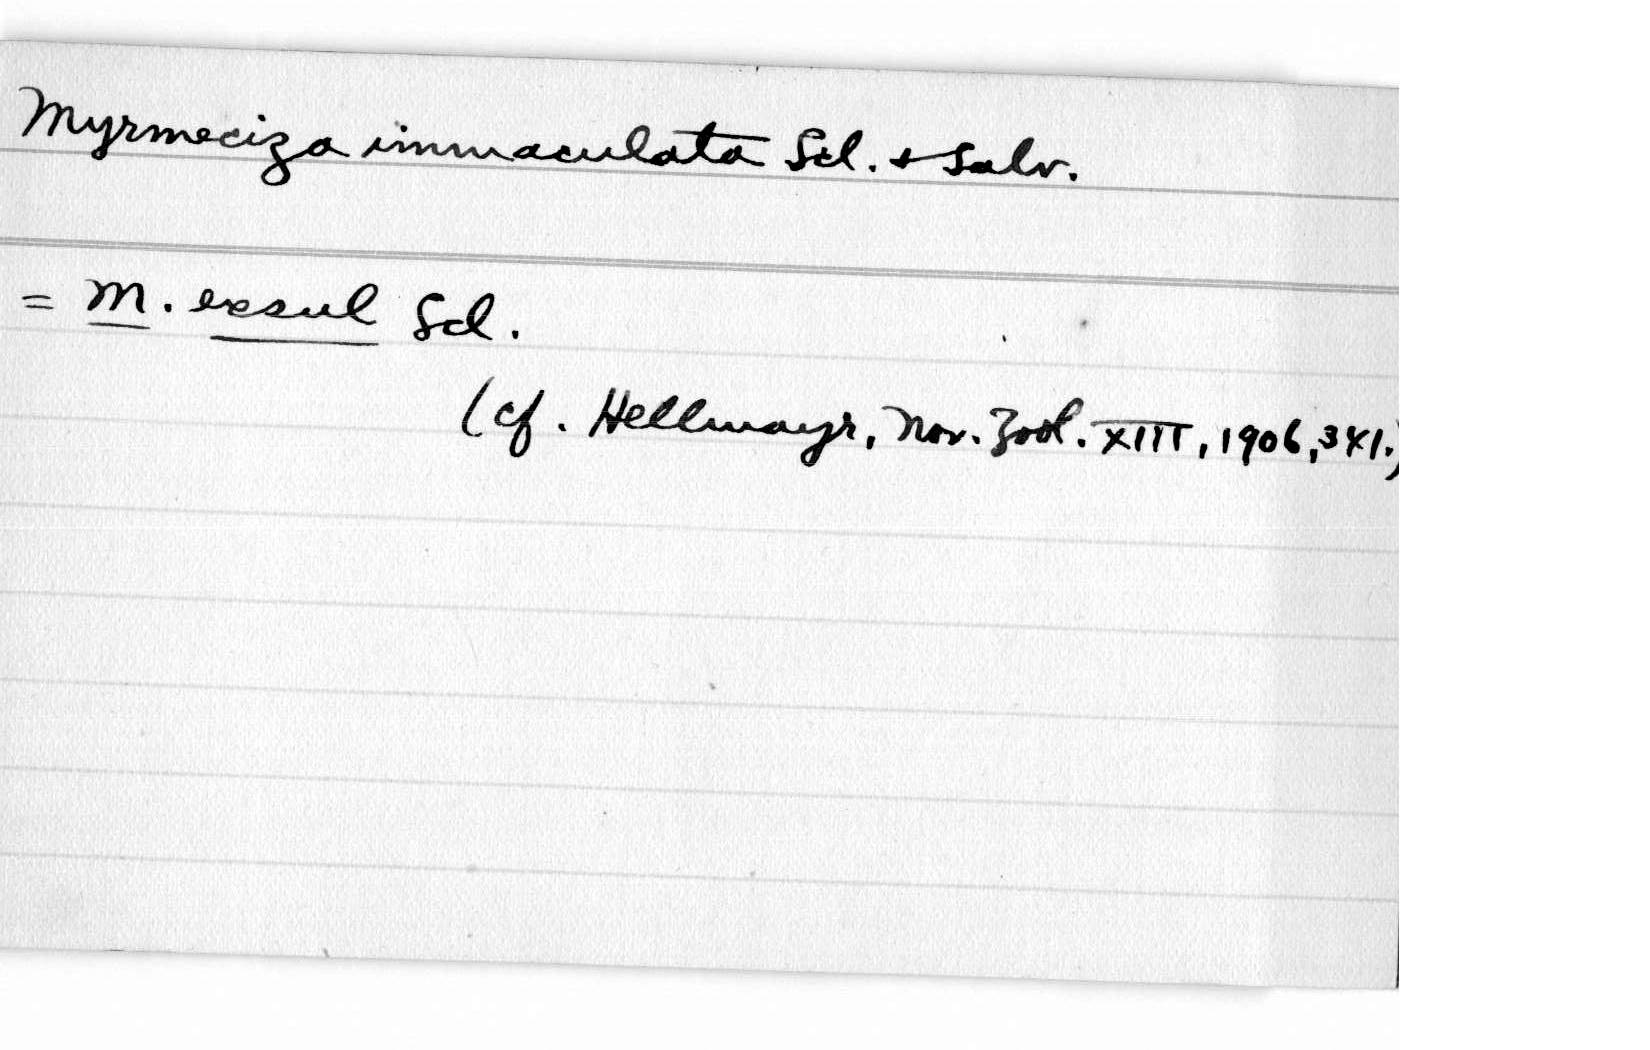 Myrmeciza immaculata Scl. & Salv.
= M. exsul Scl.
(cf. Hellmayr, Nov. Zool. XIII, 1906, 341.)